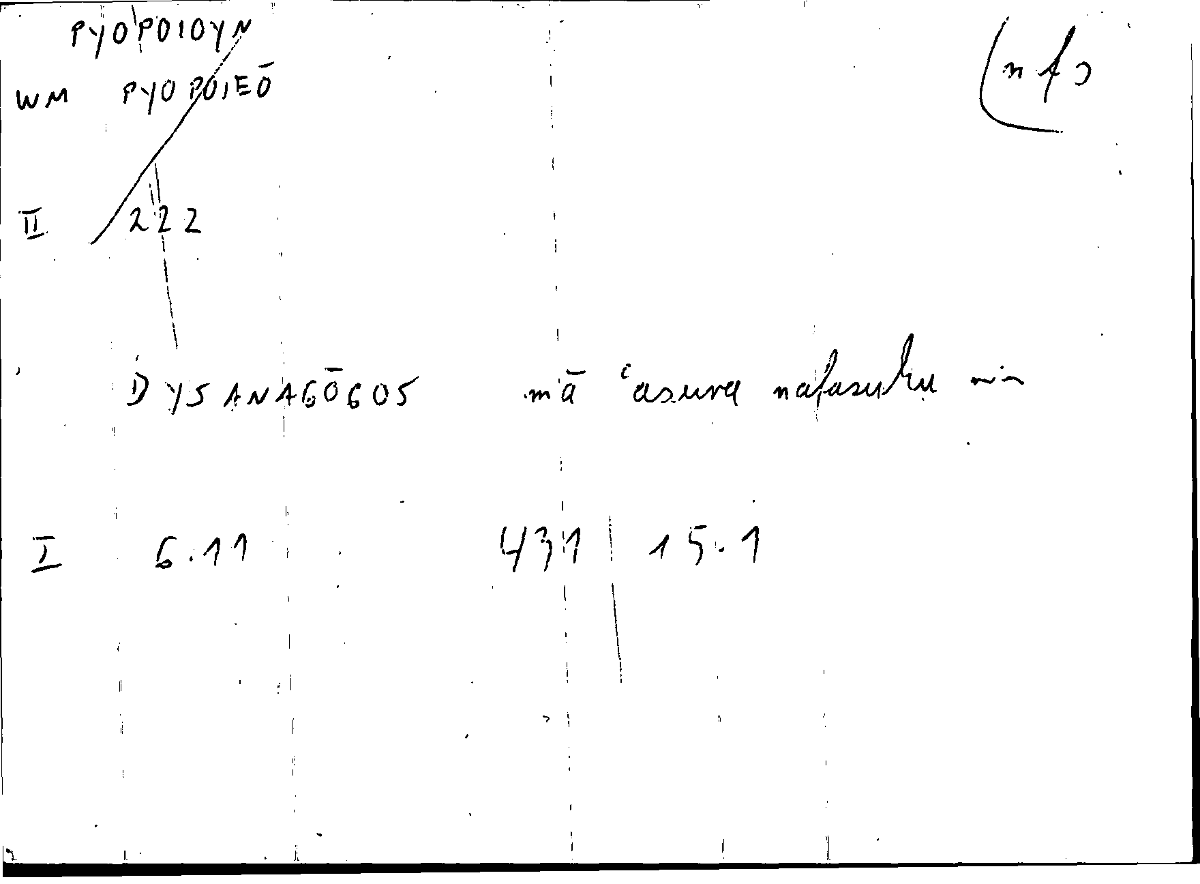 PYOPOIOYN
WM PYOPOIEŌ
(nfs
II 222
DYSANAGŌGOS mā ʿasura nafasuhu min
I 6.11 431 15.1